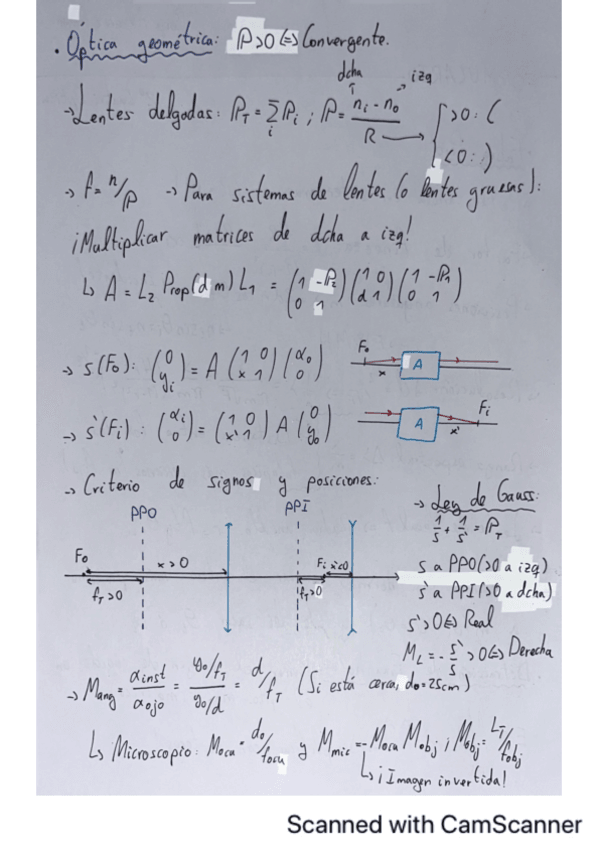 · Óptica geométrica: P>0 ⇔ Convergente.
dcha izq
→ Lentes delgadas: P_T = Σ_i P_i ; P = (n_i - n_o)/R → { >0: (
<0: )
→ f = n/P → Para sistemas de lentes (o lentes gruesas):
¡Multiplicar matrices de dcha a izq!
↳ A = L₂ Prop(d m) L₁ = (1 -P₂; 0 1)(1 0; d 1)(1 -P₁; 0 1)
→ s(F₀): (0; y_i) = A (1 0; x 1)(α₀; 0)
F₀ x A
→ s'(F_i): (α_i; 0) = (1 0; x' 1) A (0; y₀)
A x' F_i
→ Criterio de signos y posiciones:
PPO PPI
F₀ x>0 F_i x'<0
f_T>0 f_T>0
→ Ley de Gauss:
1/s + 1/s' = P_T
s a PPO (>0 a izq)
s' a PPI (>0 a dcha)
s'>0 ⇔ Real
M_L = - s'/s >0 ⇔ Derecha
→ M_ang = α_inst/α_ojo = (y₀/f_T)/(y₀/d) = d/f_T (Si está cerca, d₀=25cm)
↳ Microscopio: M_ocu = d₀/f_ocu y M_mic = -M_ocu M_obj ; M_obj = L_T/f_obj
↳ ¡Imagen invertida!
Scanned with CamScanner